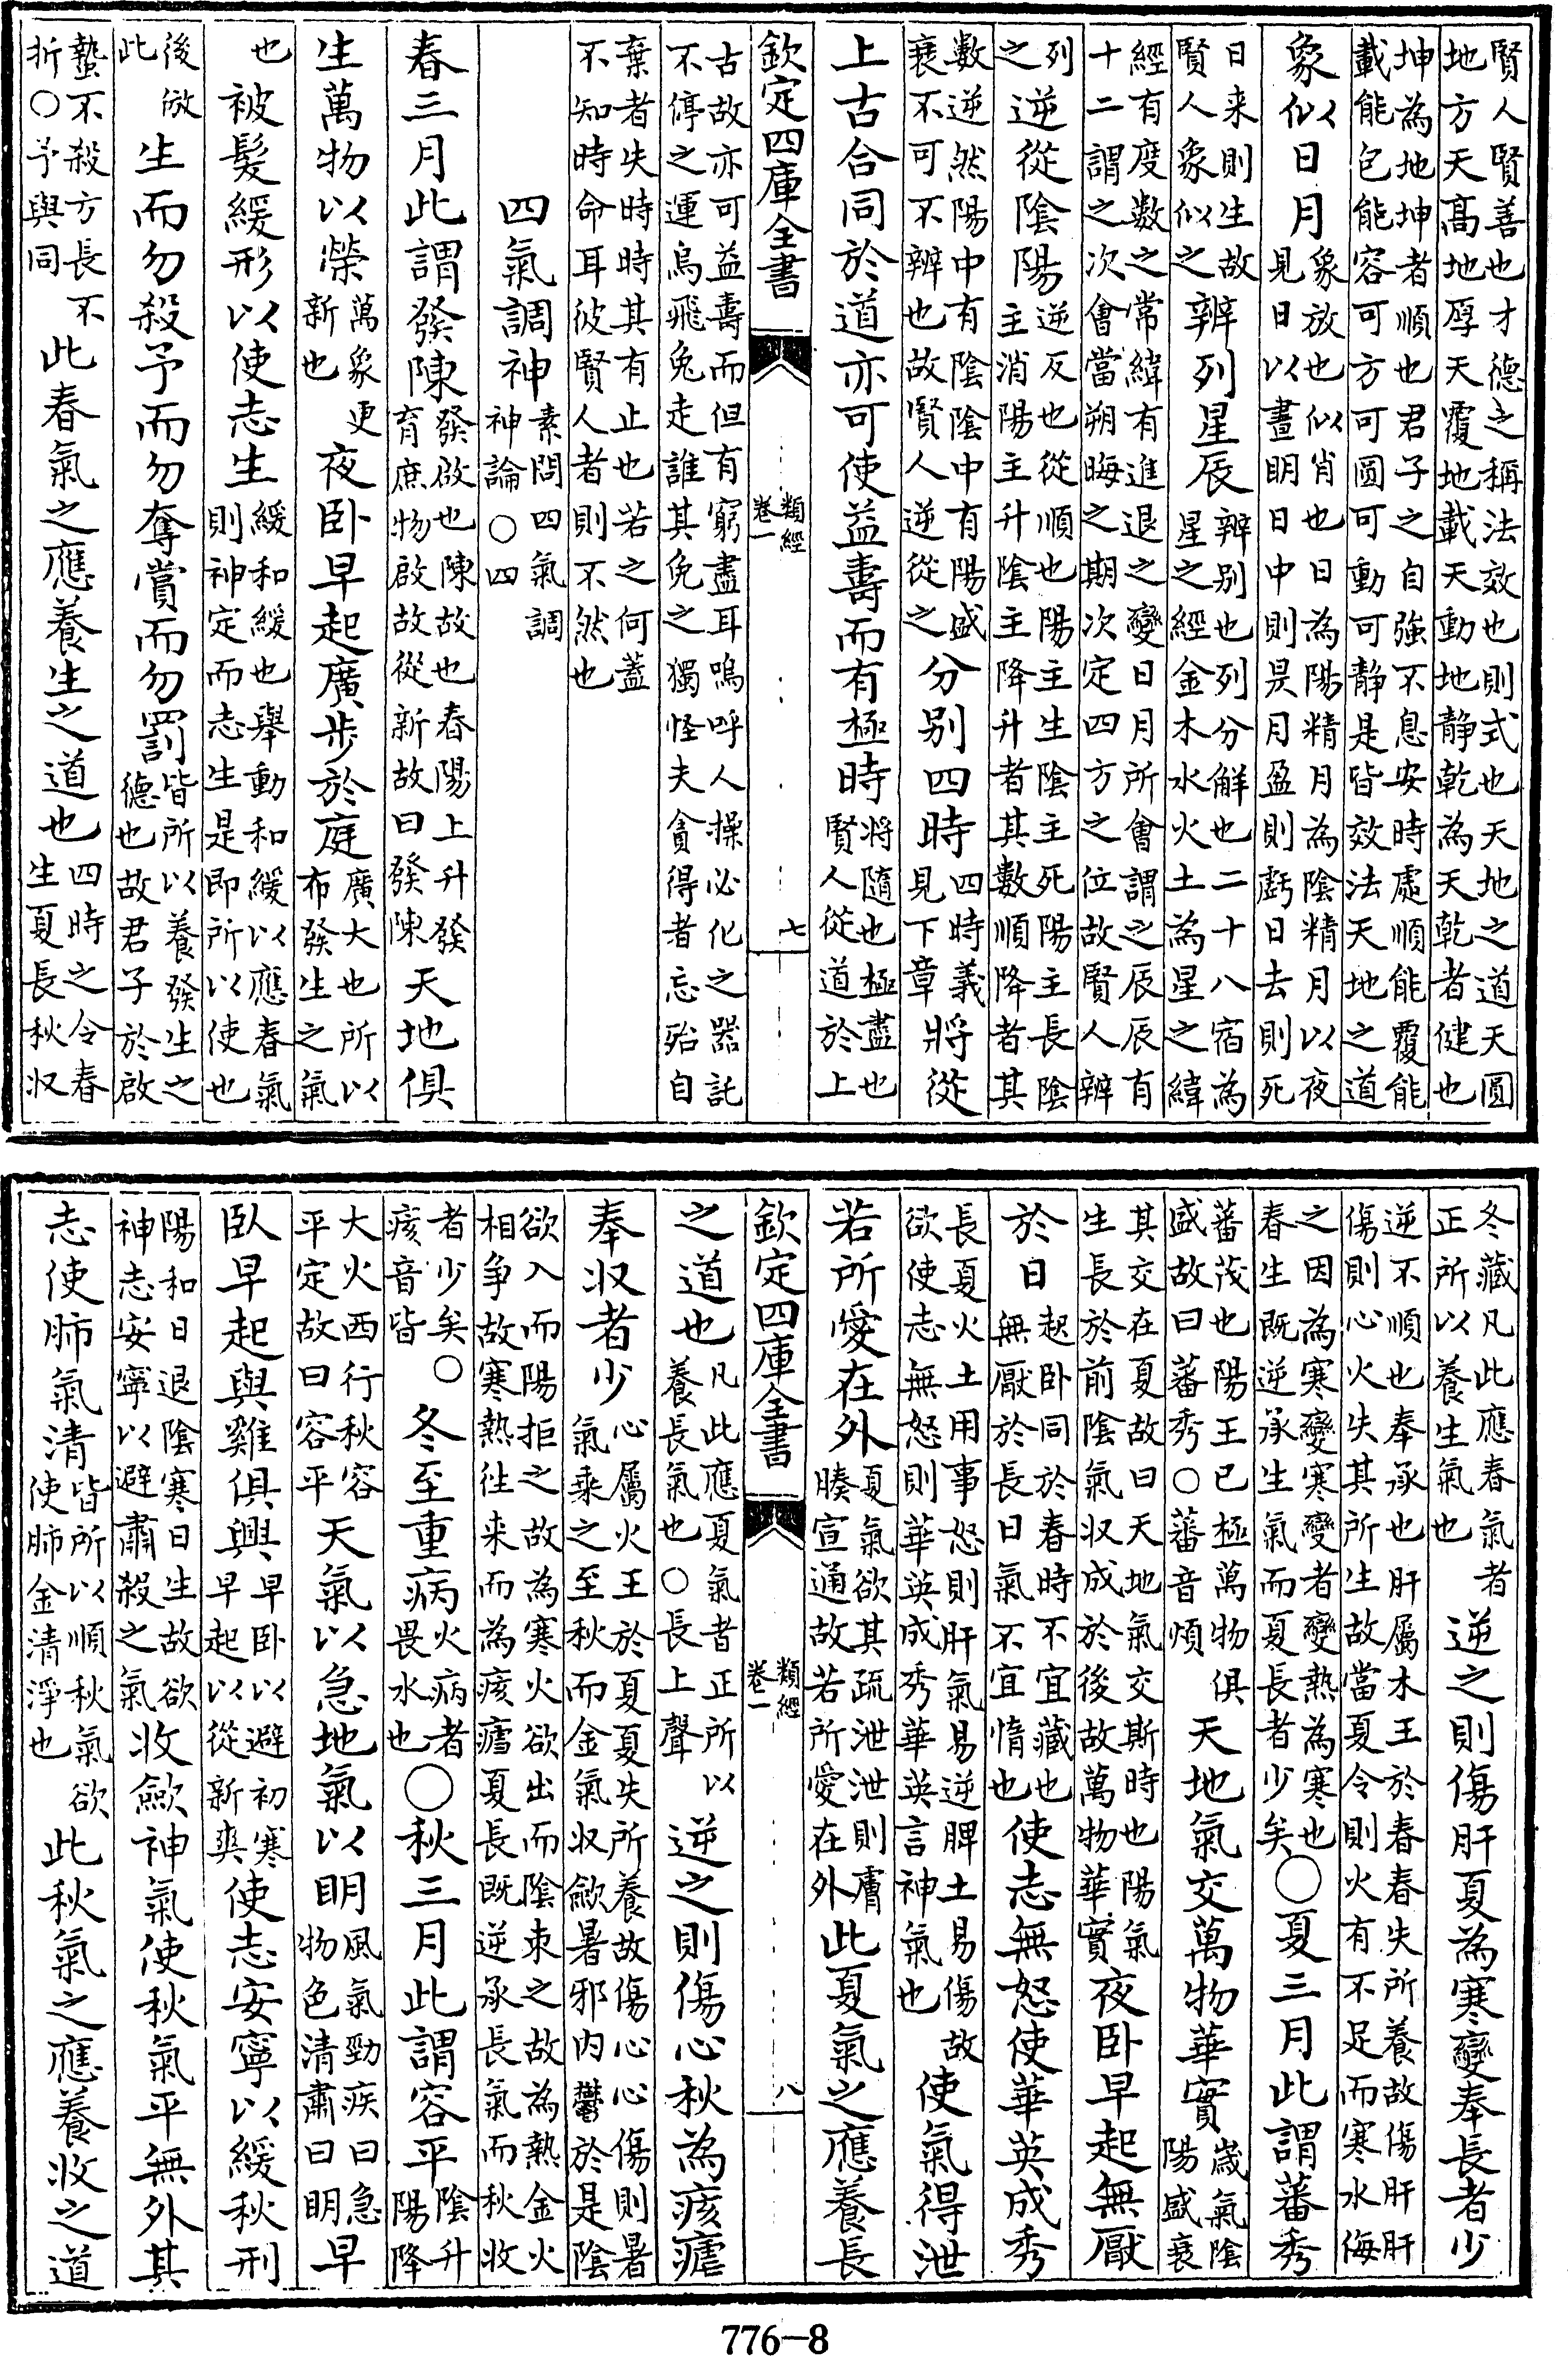 賢人賢善也才德之稱法效也則式也天地之道天圓
地方天髙地厚天覆地載天動地静乾為天乾者健也
坤為地坤者順也君子之自強不息安時處順能覆能
載能包能容可方可圓可動可静是皆效法天地之道
象似日月
象放也似肖也日為陽精月為陰精月以夜
見日以晝明日中則昃月盈則虧日去則死
日来則生故
賢人象似之
辨列星辰
辨别也列分解也二十八宿為
星之經金木水火土為星之緯
經有度數之常緯有進退之變日月所會謂之辰辰有
十二謂之次會當朔晦之期次定四方之位故賢人辨
列
之
逆從陰陽
逆反也從順也陽主生陰主死陽主長陰
主消陽主升陰主降升者其數順降者其
數逆然陽中有陰陰中有陽盛
衰不可不辨也故賢人逆從之
分别四時
四時義
見下章
將從
上古合同於道亦可使益壽而有極時
將隨也極盡也
賢人從道於上
欽定四庫全書
類經
卷一
七
古故亦可益壽而但有窮盡耳嗚呼人操必化之器託
不停之運烏飛兔走誰其免之獨怪夫貪得者忘殆自
棄者失時時其有止也若之何蓋
不知時命耳彼賢人者則不然也
四氣調神
素問四氣調
神論○四
春三月此謂發陳
發啟也陳故也春陽上升發
育庶物啟故從新故曰發陳
天地俱
生萬物以榮
萬象更
新也
夜卧早起廣步於庭
廣大也所以
布發生之氣
也
被髮緩形以使志生
緩和緩也舉動和緩以應春氣
則神定而志生是即所以使也
後倣
此
生而勿殺予而勿奪賞而勿罰
皆所以養發生之
德也故君子於啟
蟄不殺方長不
折○予與同
此春氣之應養生之道也
四時之令春
生夏長秋収
冬藏凡此應春氣者
正所以養生氣也
逆之則傷肝夏為寒變奉長者少
逆不順也奉承也肝屬木王於春春失所養故傷肝肝
傷則心火失其所生故當夏令則火有不足而寒水侮
之因為寒變寒變者變熱為寒也
春生既逆承生氣而夏長者少矣
○夏三月此謂蕃秀
蕃茂也陽王已極萬物俱
盛故曰蕃秀○蕃音煩
天地氣交萬物華實
歲氣陰
陽盛衰
其交在夏故曰天地氣交斯時也陽氣
生長於前陰氣収成於後故萬物華實
夜卧早起無厭
於日
起卧同於春時不宜藏也
無厭於長日氣不宜惰也
使志無怒使華英成秀
長夏火土用事怒則肝氣易逆脾土易傷故
欲使志無怒則華英成秀華英言神氣也
使氣得泄
若所愛在外
夏氣欲其疏泄泄則膚
腠宣通故若所愛在外
此夏氣之應養長
欽定四庫全書
類經
卷一
八
之道也
凡此應夏氣者正所以
養長氣也○長上聲
逆之則傷心秋為痎瘧
奉収者少
心屬火王於夏夏失所養故傷心心傷則暑
氣乘之至秋而金氣収歛暑邪内鬱於是陰
欲入而陽拒之故為寒火欲出而陰束之故為熱金火
相争故寒熱往来而為痎瘧夏長既逆承長氣而秋收
者少矣○
痎音皆
冬至重病
火病者
畏水也
○秋三月此謂容平
陰升
陽降
大火西行秋容
平定故曰容平
天氣以急地氣以明
風氣勁疾曰急
物色清肅曰明
早
臥早起與雞俱興
早卧以避初寒
早起以從新爽
使志安寧以緩秋刑
陽和日退陰寒日生故欲
神志安寧以避肅殺之氣
收歛神氣使秋氣平無外其
志使肺氣清
皆所以順秋氣欲
使肺金清淨也
此秋氣之應養收之道
776-8